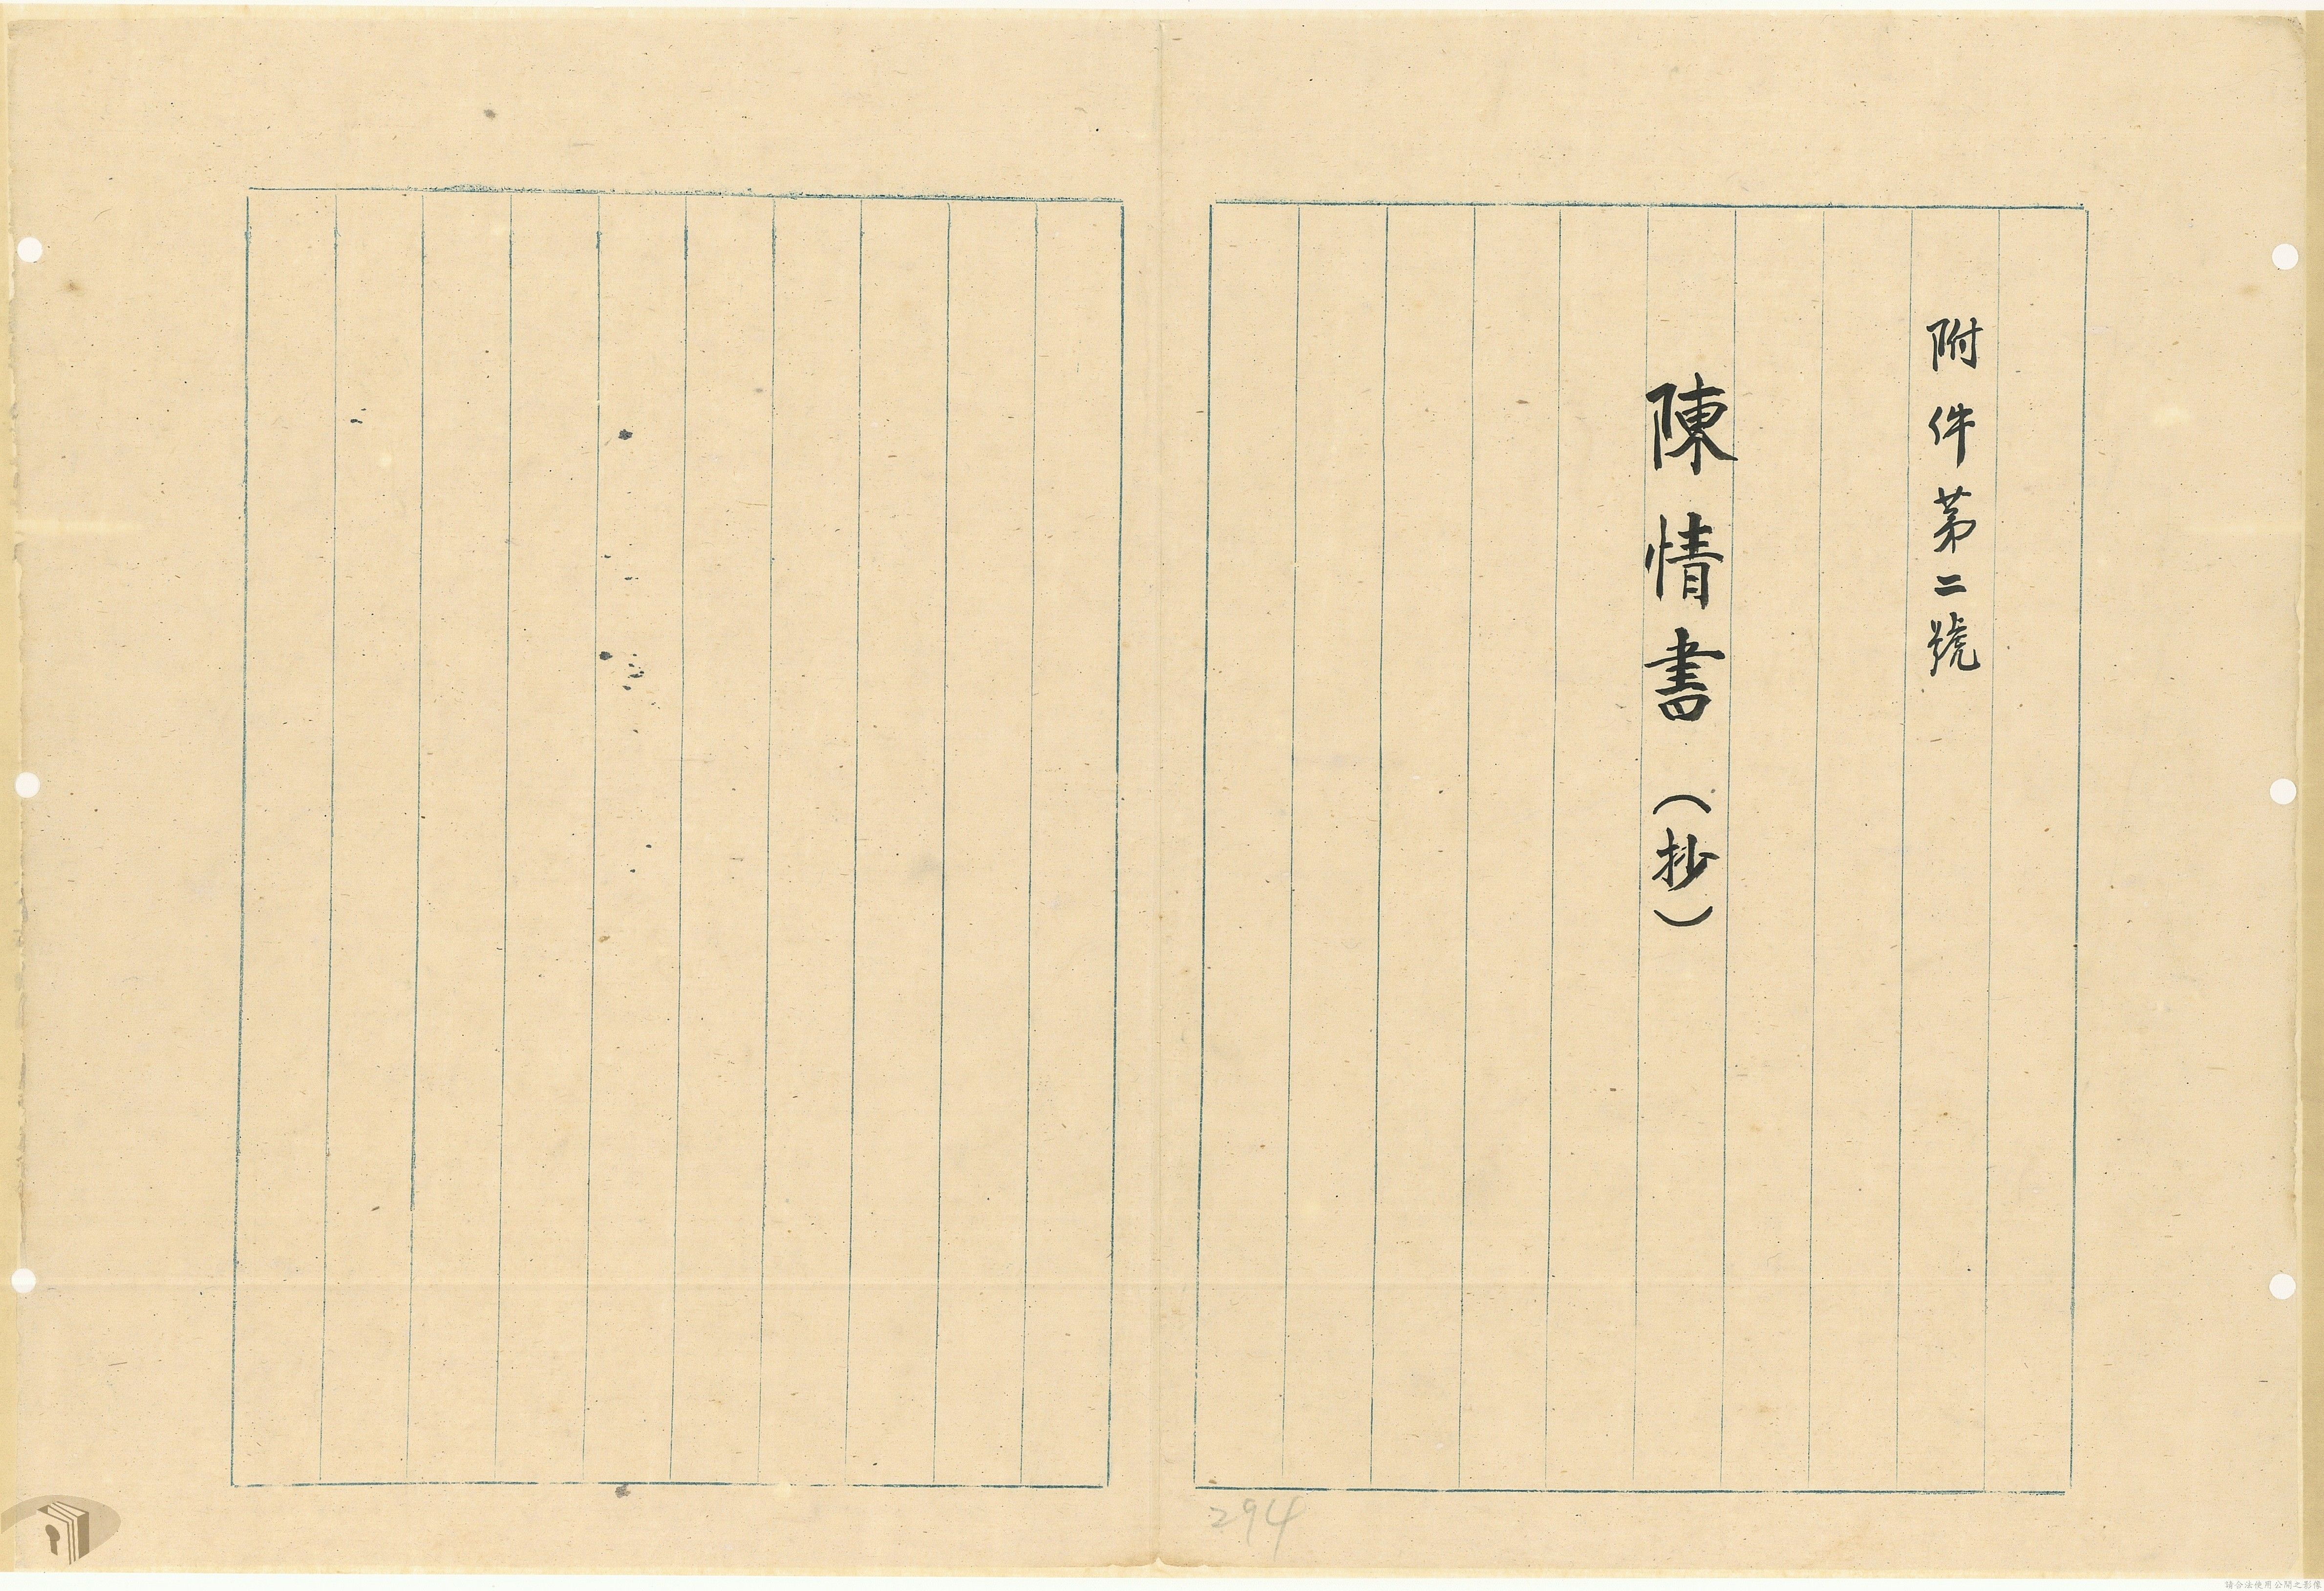 附件苐二號
陳情書（抄）
294
請合法使用公開之影像